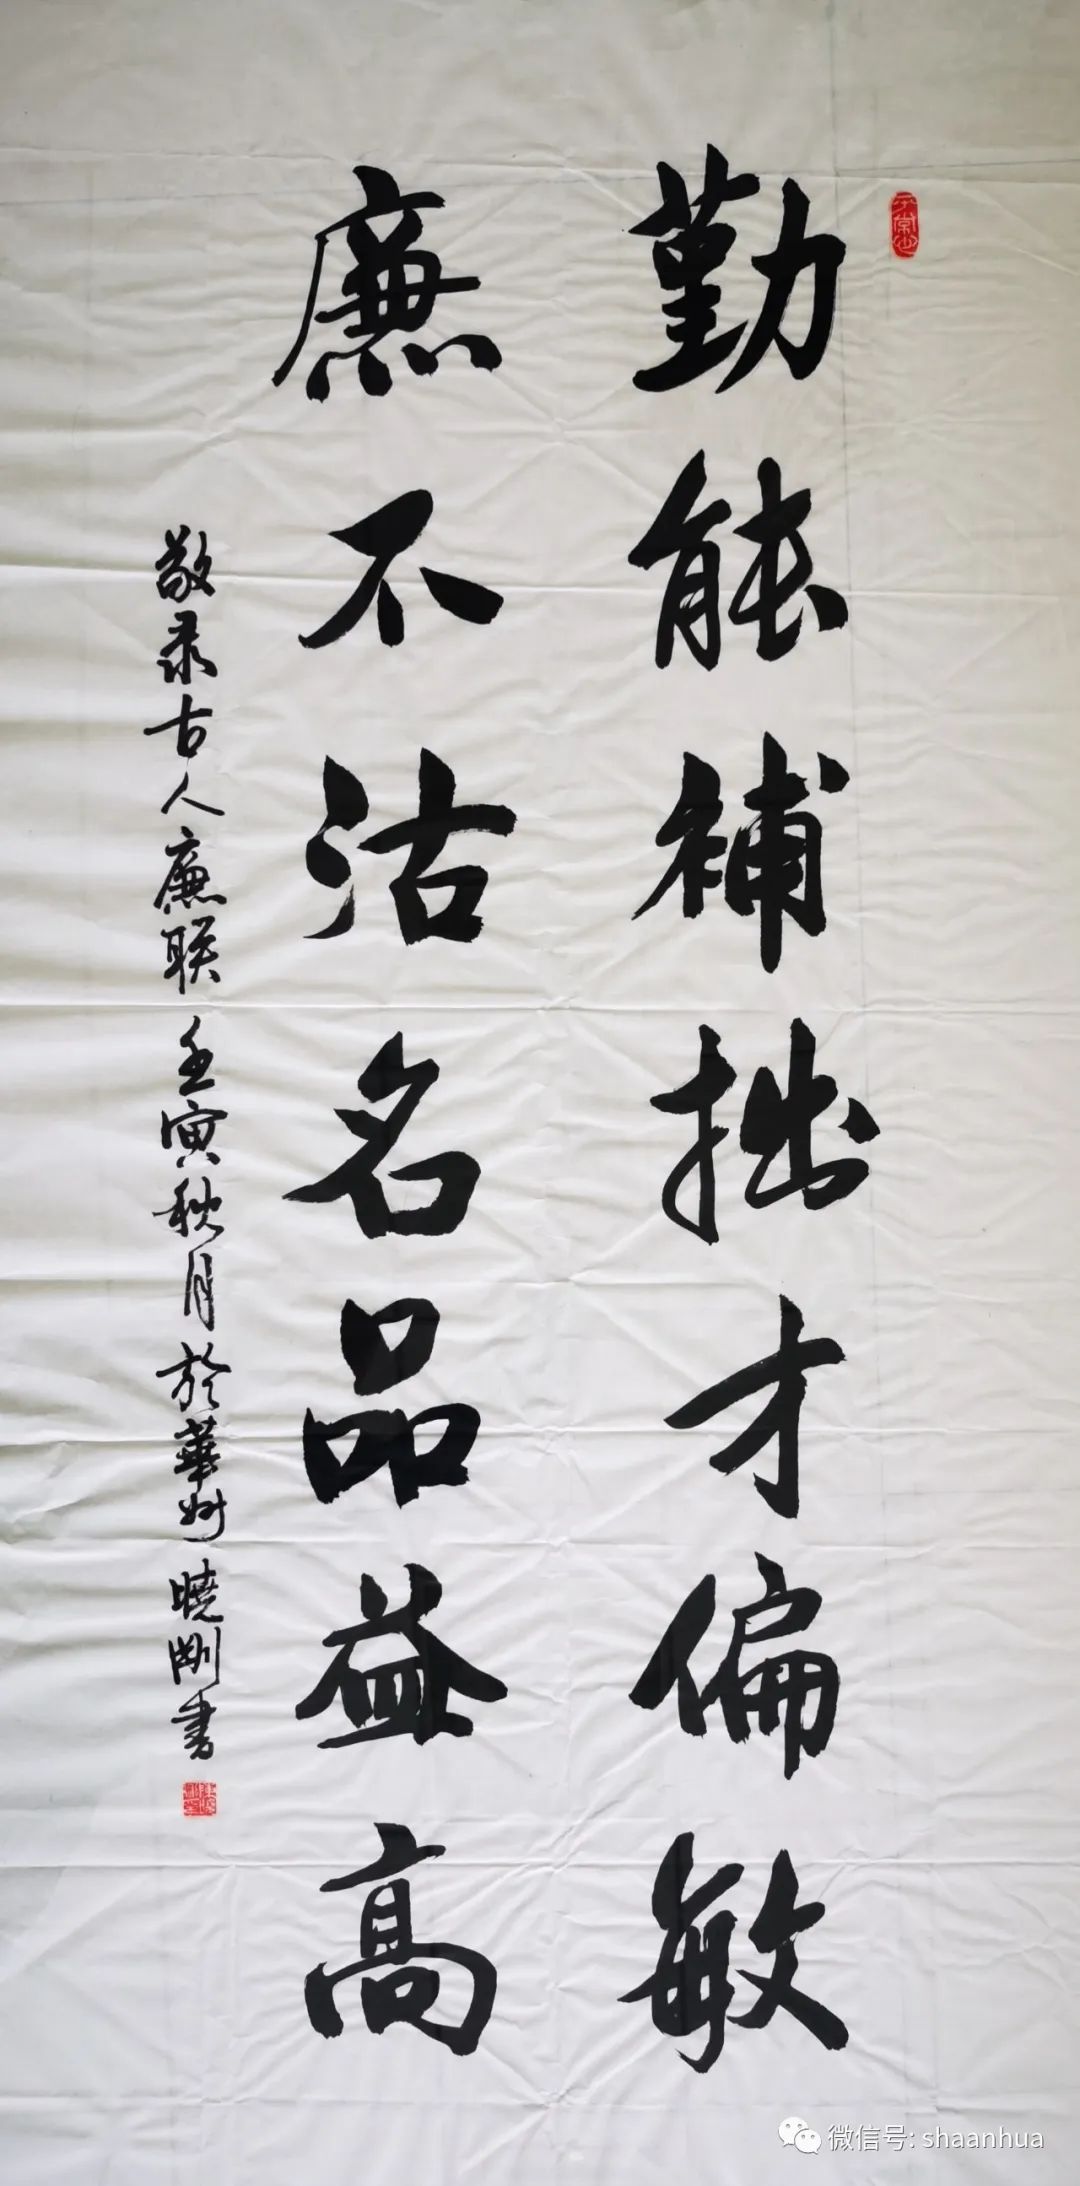 勤能補拙才偏敏
廉不沽名品益高
敬录古人廉联 壬寅秋月於華州 曉剛书
微信号: shaanhua